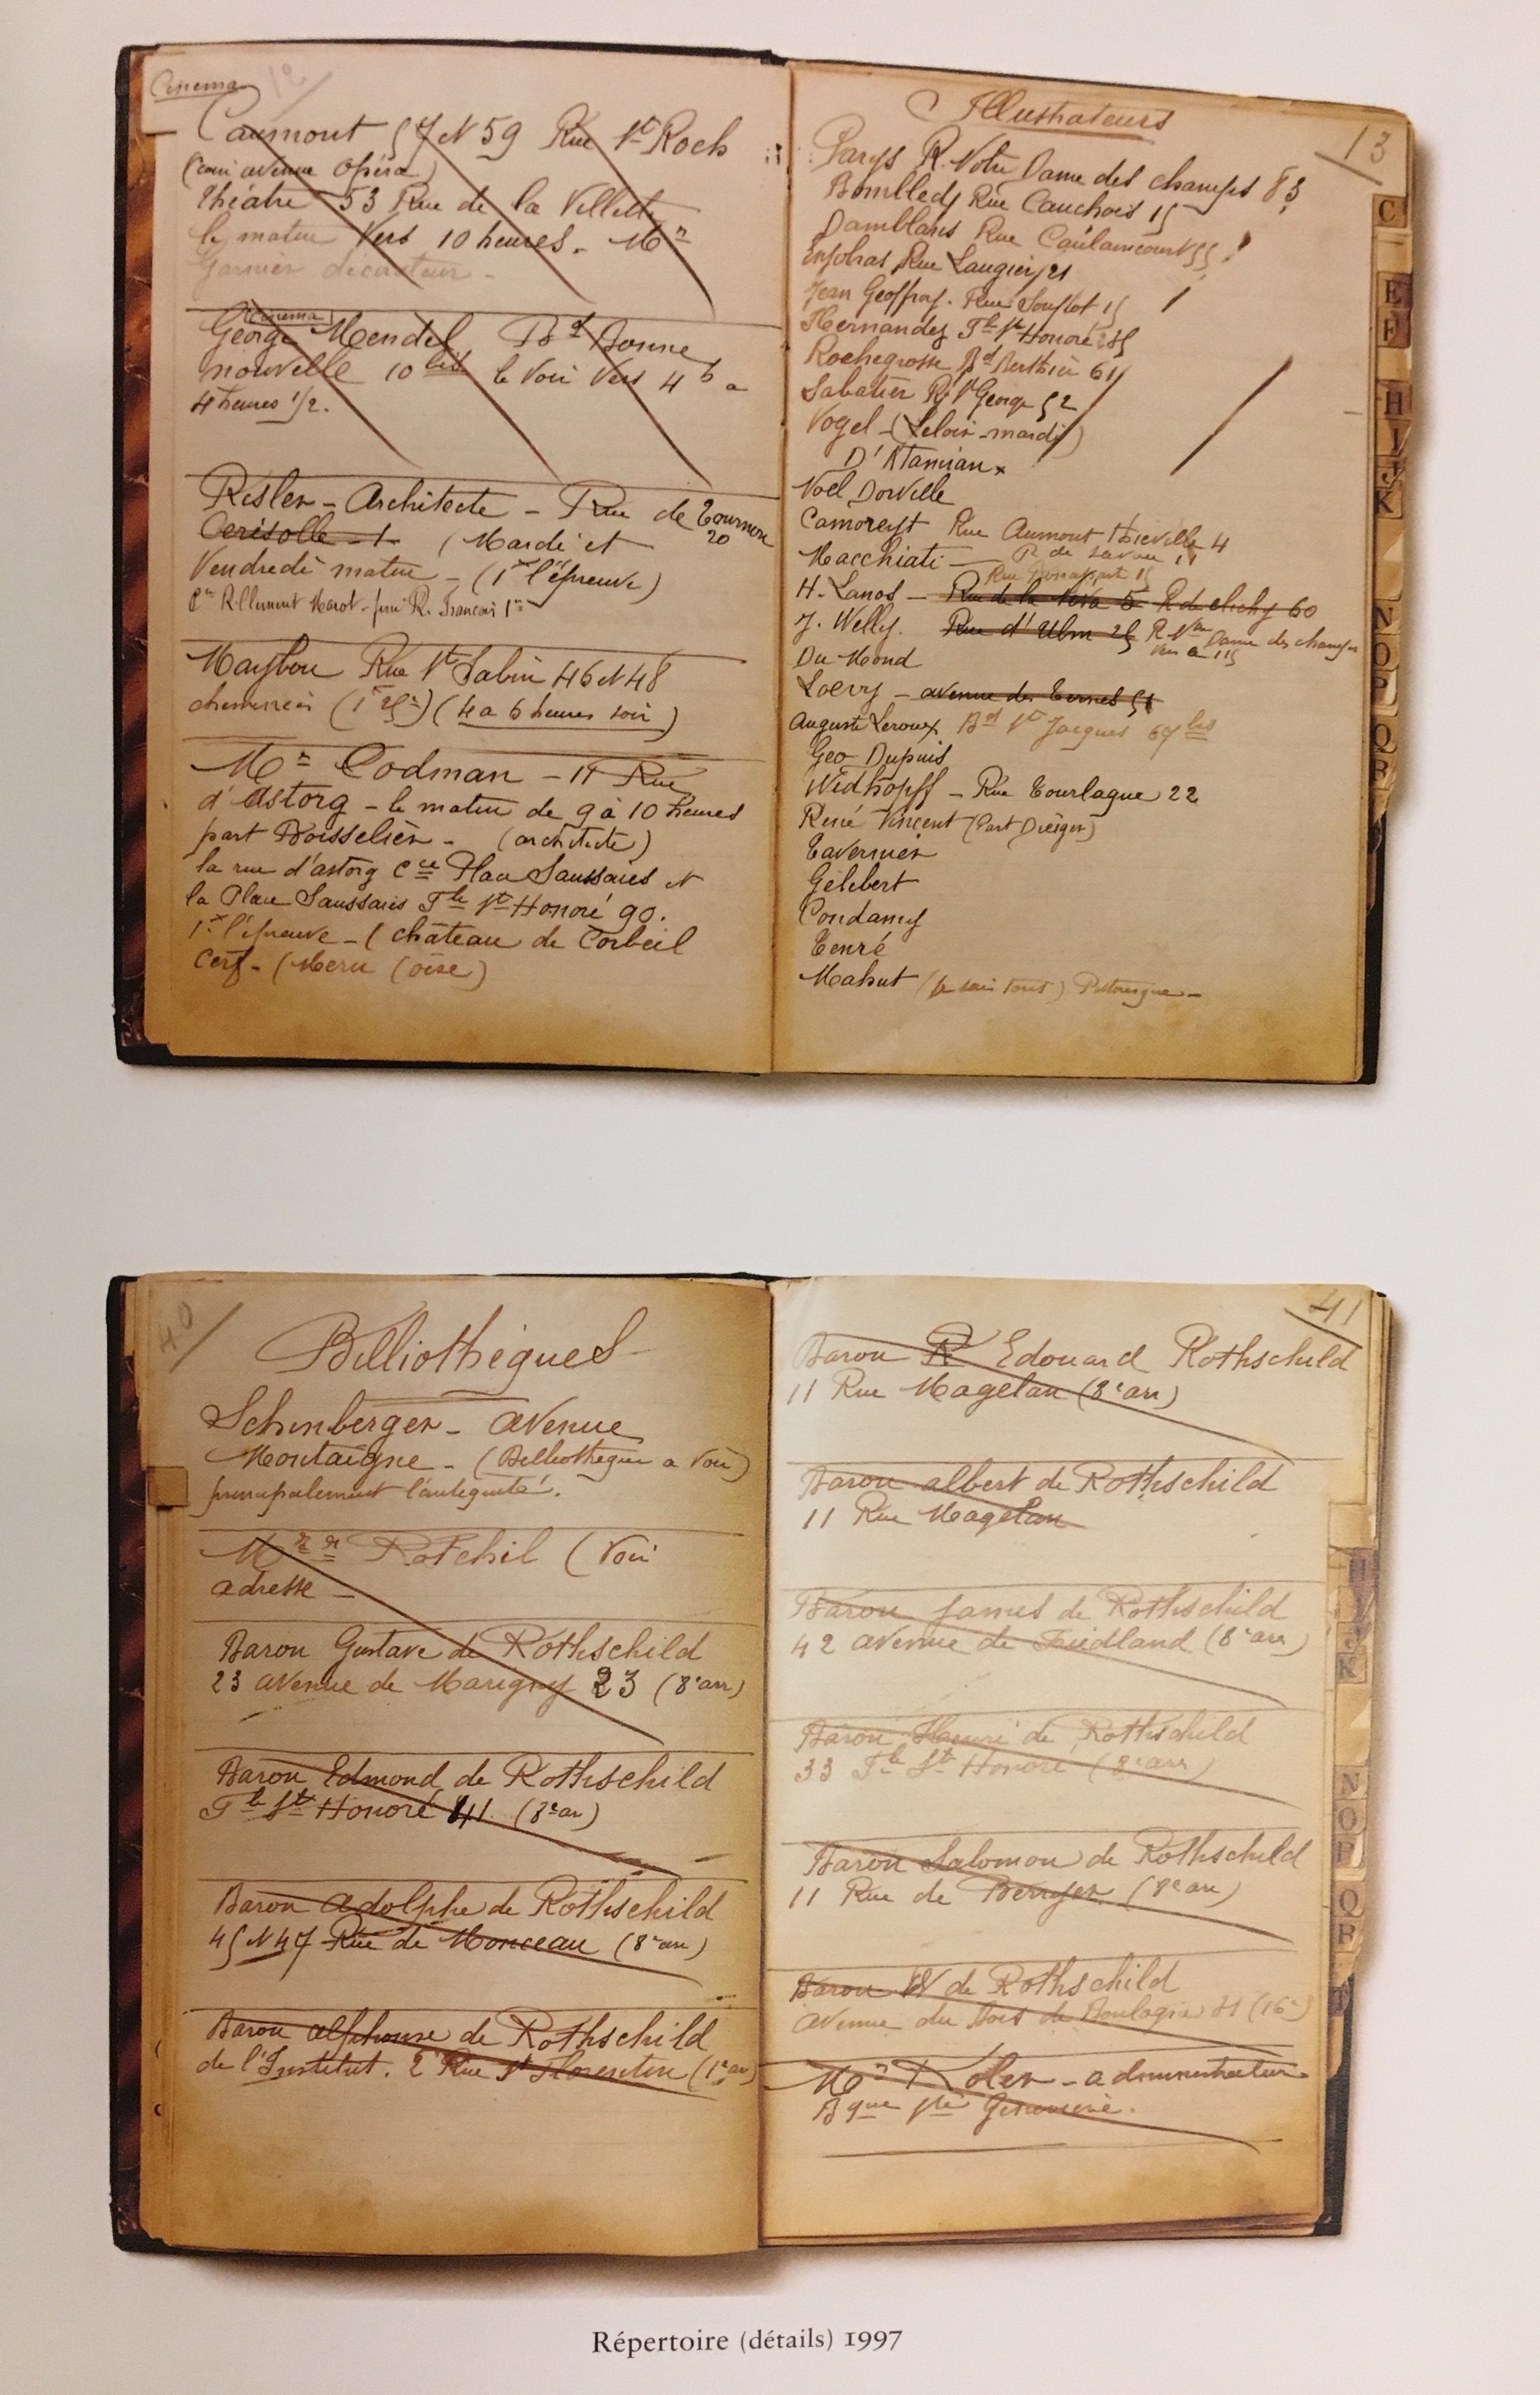 Cinema
12
Caumont 57 et 59 Rue St Roch
(coin avenue Opéra)
théâtre 53 Rue de la Villette
le matin vers 10 heures. Mr
Garnier décorateur -
Cinema
George Mendel Bd Bonne
nouvelle 10 bis le voir vers 4 h a
4 heures 1/2.
Risler - Architecte - Rue de Tournon
20
Cerisolle - 1 (Mardi et
Vendredi matin - (1x l'épreuve)
Maybou Rue St Sabin 46 et 48
cheminées (1x 25c) (4 a 6 heures soir)
Mr Codman - 11 Rue
d'astorg - le matin de 9 à 10 heures
part Boisselier - (architecte)
la rue d'astorg Cce Place Saussaies et
la Place Saussaies Fb St Honoré 90.
1x l'épreuve - (château de Corbeil
Cerf - (Meru (oise)
Illustrateurs
13
Parys R. Notre Dame des champs 83
Bombled Rue Cauchois 15
Damblans Rue Caulaincourt 55
Rue Laugier 21
Jean Geoffroy. Rue Souflot 15
Hernandez Fb St Honoré
Rochegrosse Bd Berthier 61
Sabatier R. St George 52
Vogel - (Leloir - mardi)
D'Atamian x
Noel Dorville
Camoreyt Rue Aumont thieville 4
Macchiati - R de Savoie 11
Rue Bonaparte 15
H. Lanos - Rue de la Neva 5 R de clichy 60
J. Welly. Rue d'Ulm 25 R. Nre Dame des champs
115
Du Mond
Loevy - avenue des Ternes 51
Auguste Leroux Bd St Jacques 67 bis
Geo Dupuis
Widhopff - Rue Tourlaque 22
René Vincent (Part
Tavernier
Gélibert
Condamy
Tenré
Mahut (Je sais tout) Pittoresque -
C
E
F
H
I
J
K
N
O
P
Q
R
40
Billiothèques
Schenberger - avenue
Montaigne - (Billiothèque a voir)
principalement l'antiquité.
Rotchil (voir
adresse -
Baron Gustave de Rothschild
23 avenue de Marigny 23 (8e arr)
Baron Edmond de Rothschild
Fb St Honoré 41 (8e arr)
Baron adolphe de Rothschild
45 et 47 Rue de Monceau (8e arr)
Baron alphonse de Rothschild
de l'Institut. 2 Rue St Florentin (1e arr)
41
Baron R Edouard Rothschild
11 Rue Magelan (8e arr)
Baron albert de Rothschild
11 Rue Magelan
Baron james de Rothschild
42 avenue de Friedland (8e arr)
Baron Henri de Rothschild
33 Fb St Honoré (8e arr)
Baron Salomon de Rothschild
11 Rue de Berryer (8e arr)
Baron W de Rothschild
avenue du Bois de Boulogne 31 (16e)
Mr Kolen - administrateur
Bque Ste Geneviève.
H
I
J
K
N
O
P
Q
R
T
Répertoire (détails) 1997